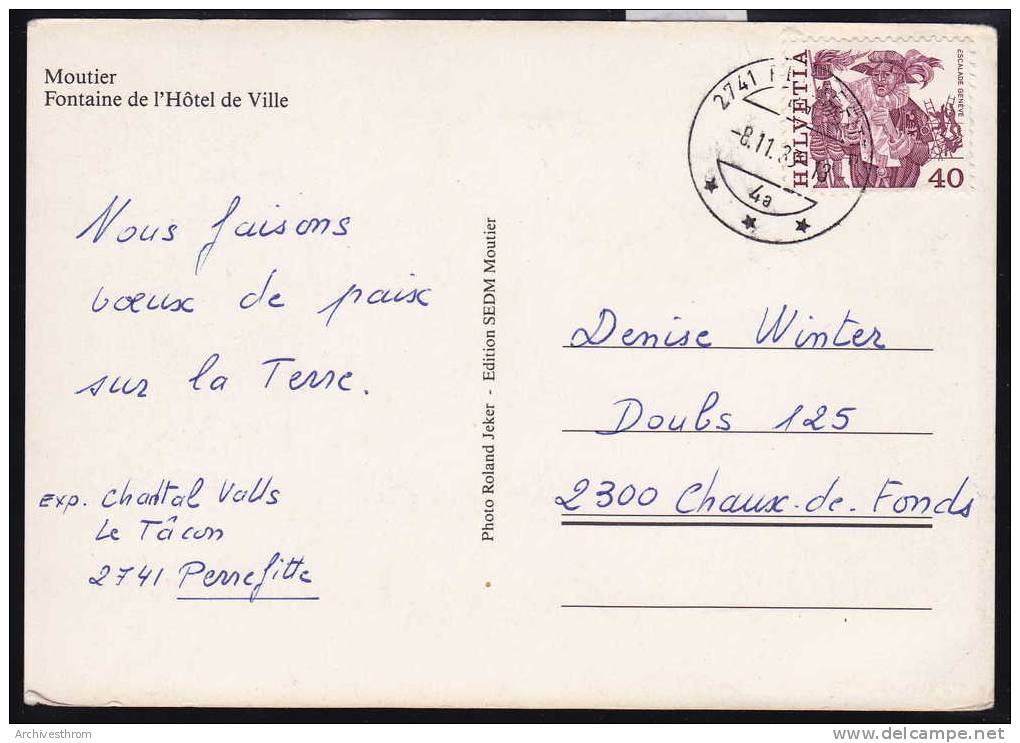 Moutier
Fontaine de l'Hôtel de Ville
Nous faisons
vœux de paix
sur la Terre.
Exp. Chantal Valls
Le Tâcon
2741 Perrefitte
Photo Roland Jeker - Edition SEDM Moutier
2741
-8.11.
4a
HELVETIA
ESCALADE GENÈVE
40
Denise Winter
Doubs 125
2300 Chaux-de-Fonds
Archivesthrom
www.delcampe.net